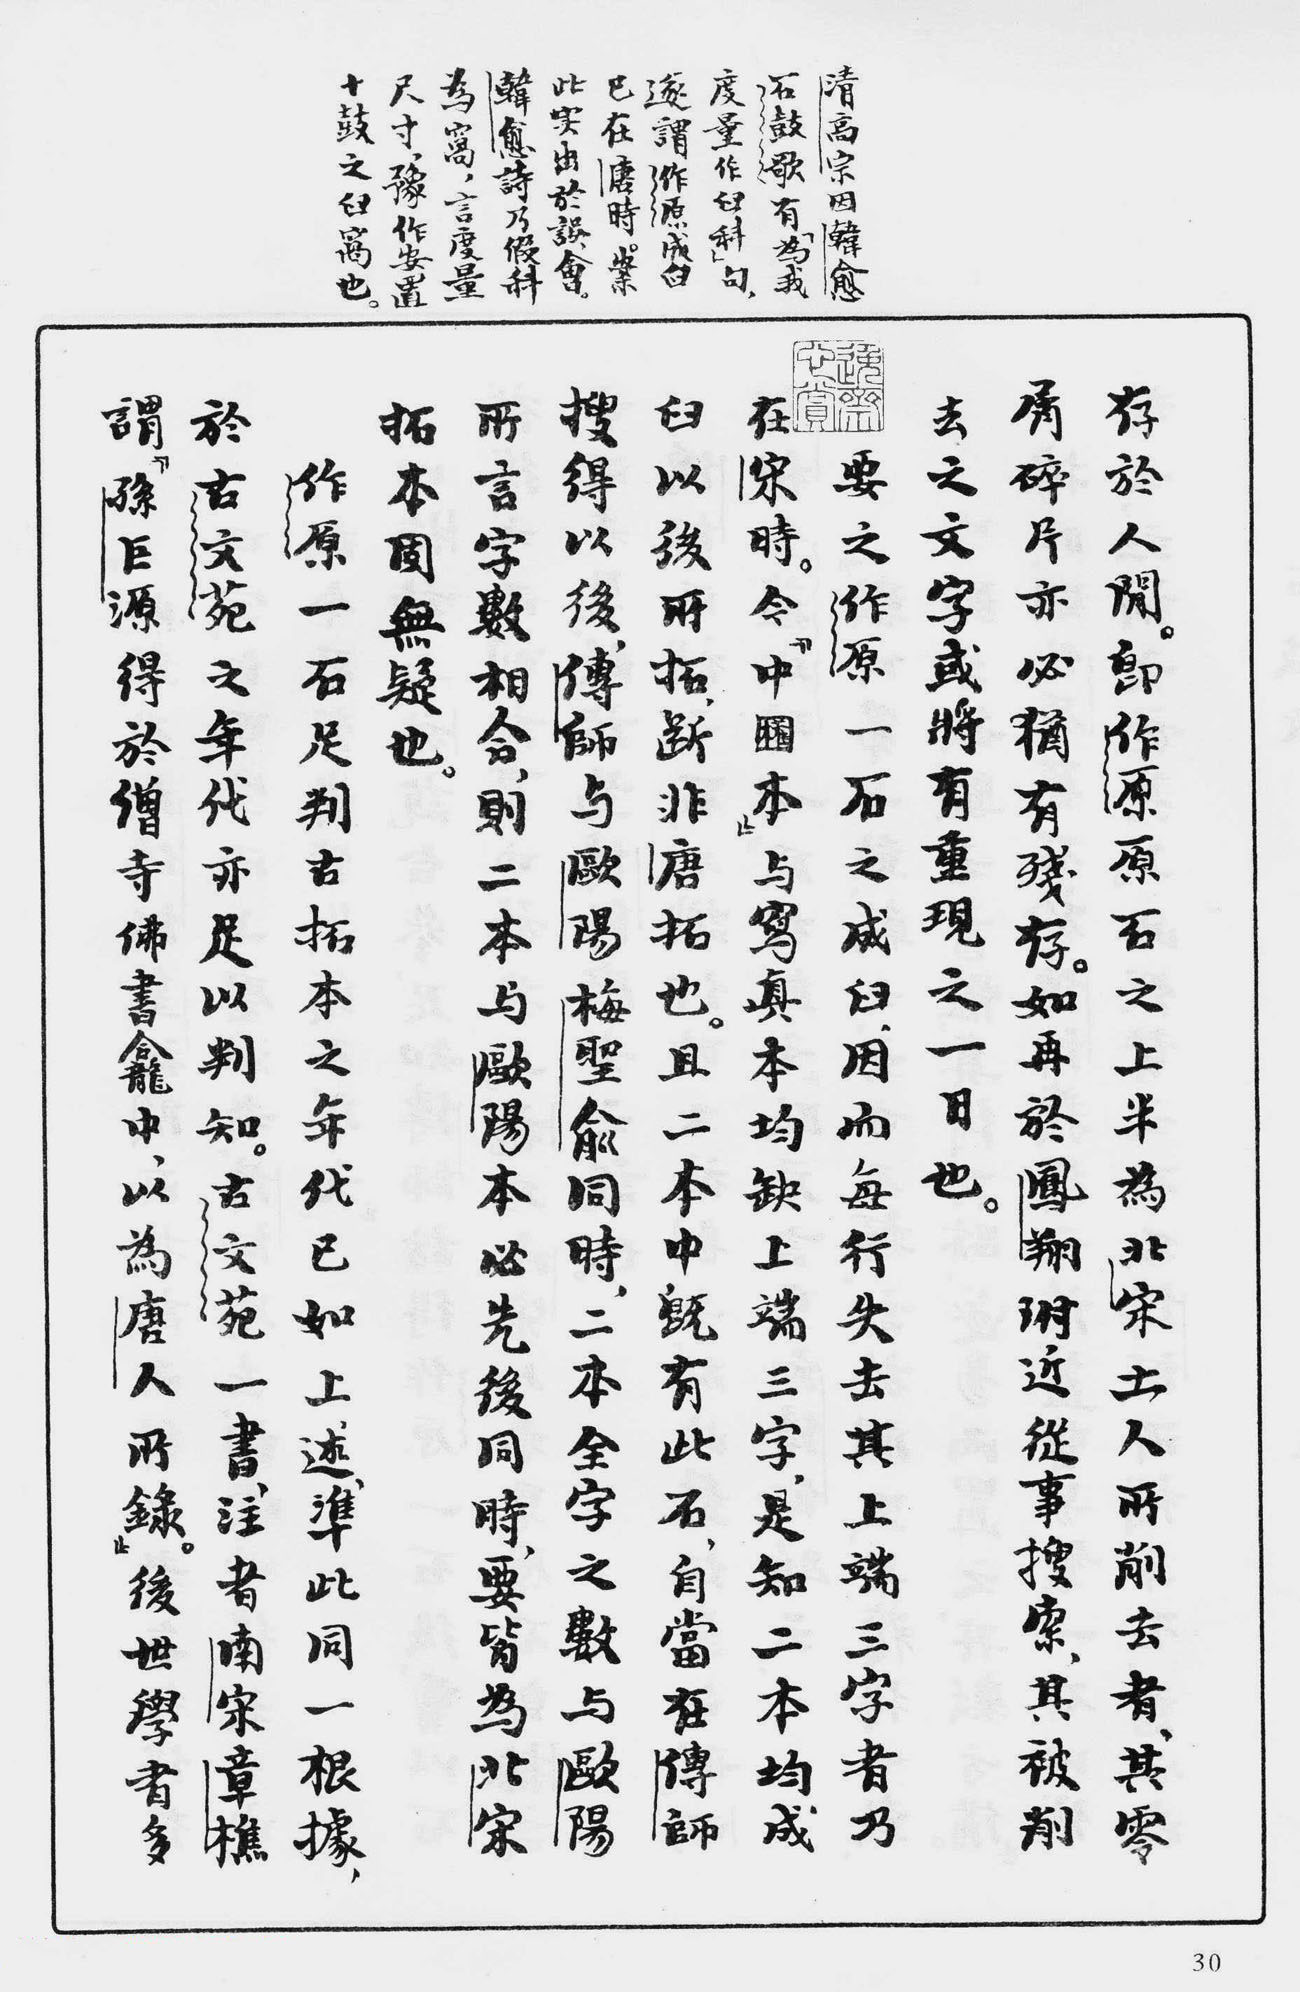 清高宗因韓愈
石鼓歌有「為我
度量作臼科」句、
遂謂作原成臼
已在唐時。案
此実出於誤會。
韓愈詩乃假科
為窩，言度量
尺寸，豫作安置
十鼓之臼窩也。
存於人間。即作原原石之上半為北宋土人所削去者、其零
屑碎片亦必猶有殘存。如再於鳳翔附近從事搜索、其被削
去之文字或將有重現之一日也。
要之作原一石之成臼、因而每行失去其上端三字者乃
在宋時。今「中國本」与寫真本均缺上端三字、是知二本均成
臼以後所拓、斷非唐拓也。且二本中既有此石、自當在傅師
搜得以後、傅師与歐陽梅聖俞同時、二本全字之數与歐陽
所言字數相合、則二本与歐陽本必先後同時、要皆為北宋
拓本固無疑也。
作原一石足判古拓本之年代已如上述、準此同一根據、
於古文苑之年代亦足以判知。古文苑一書、注者南宋章樵
謂「孫巨源得於僧寺佛書龕中、以為唐人所錄。」後世學者多
30